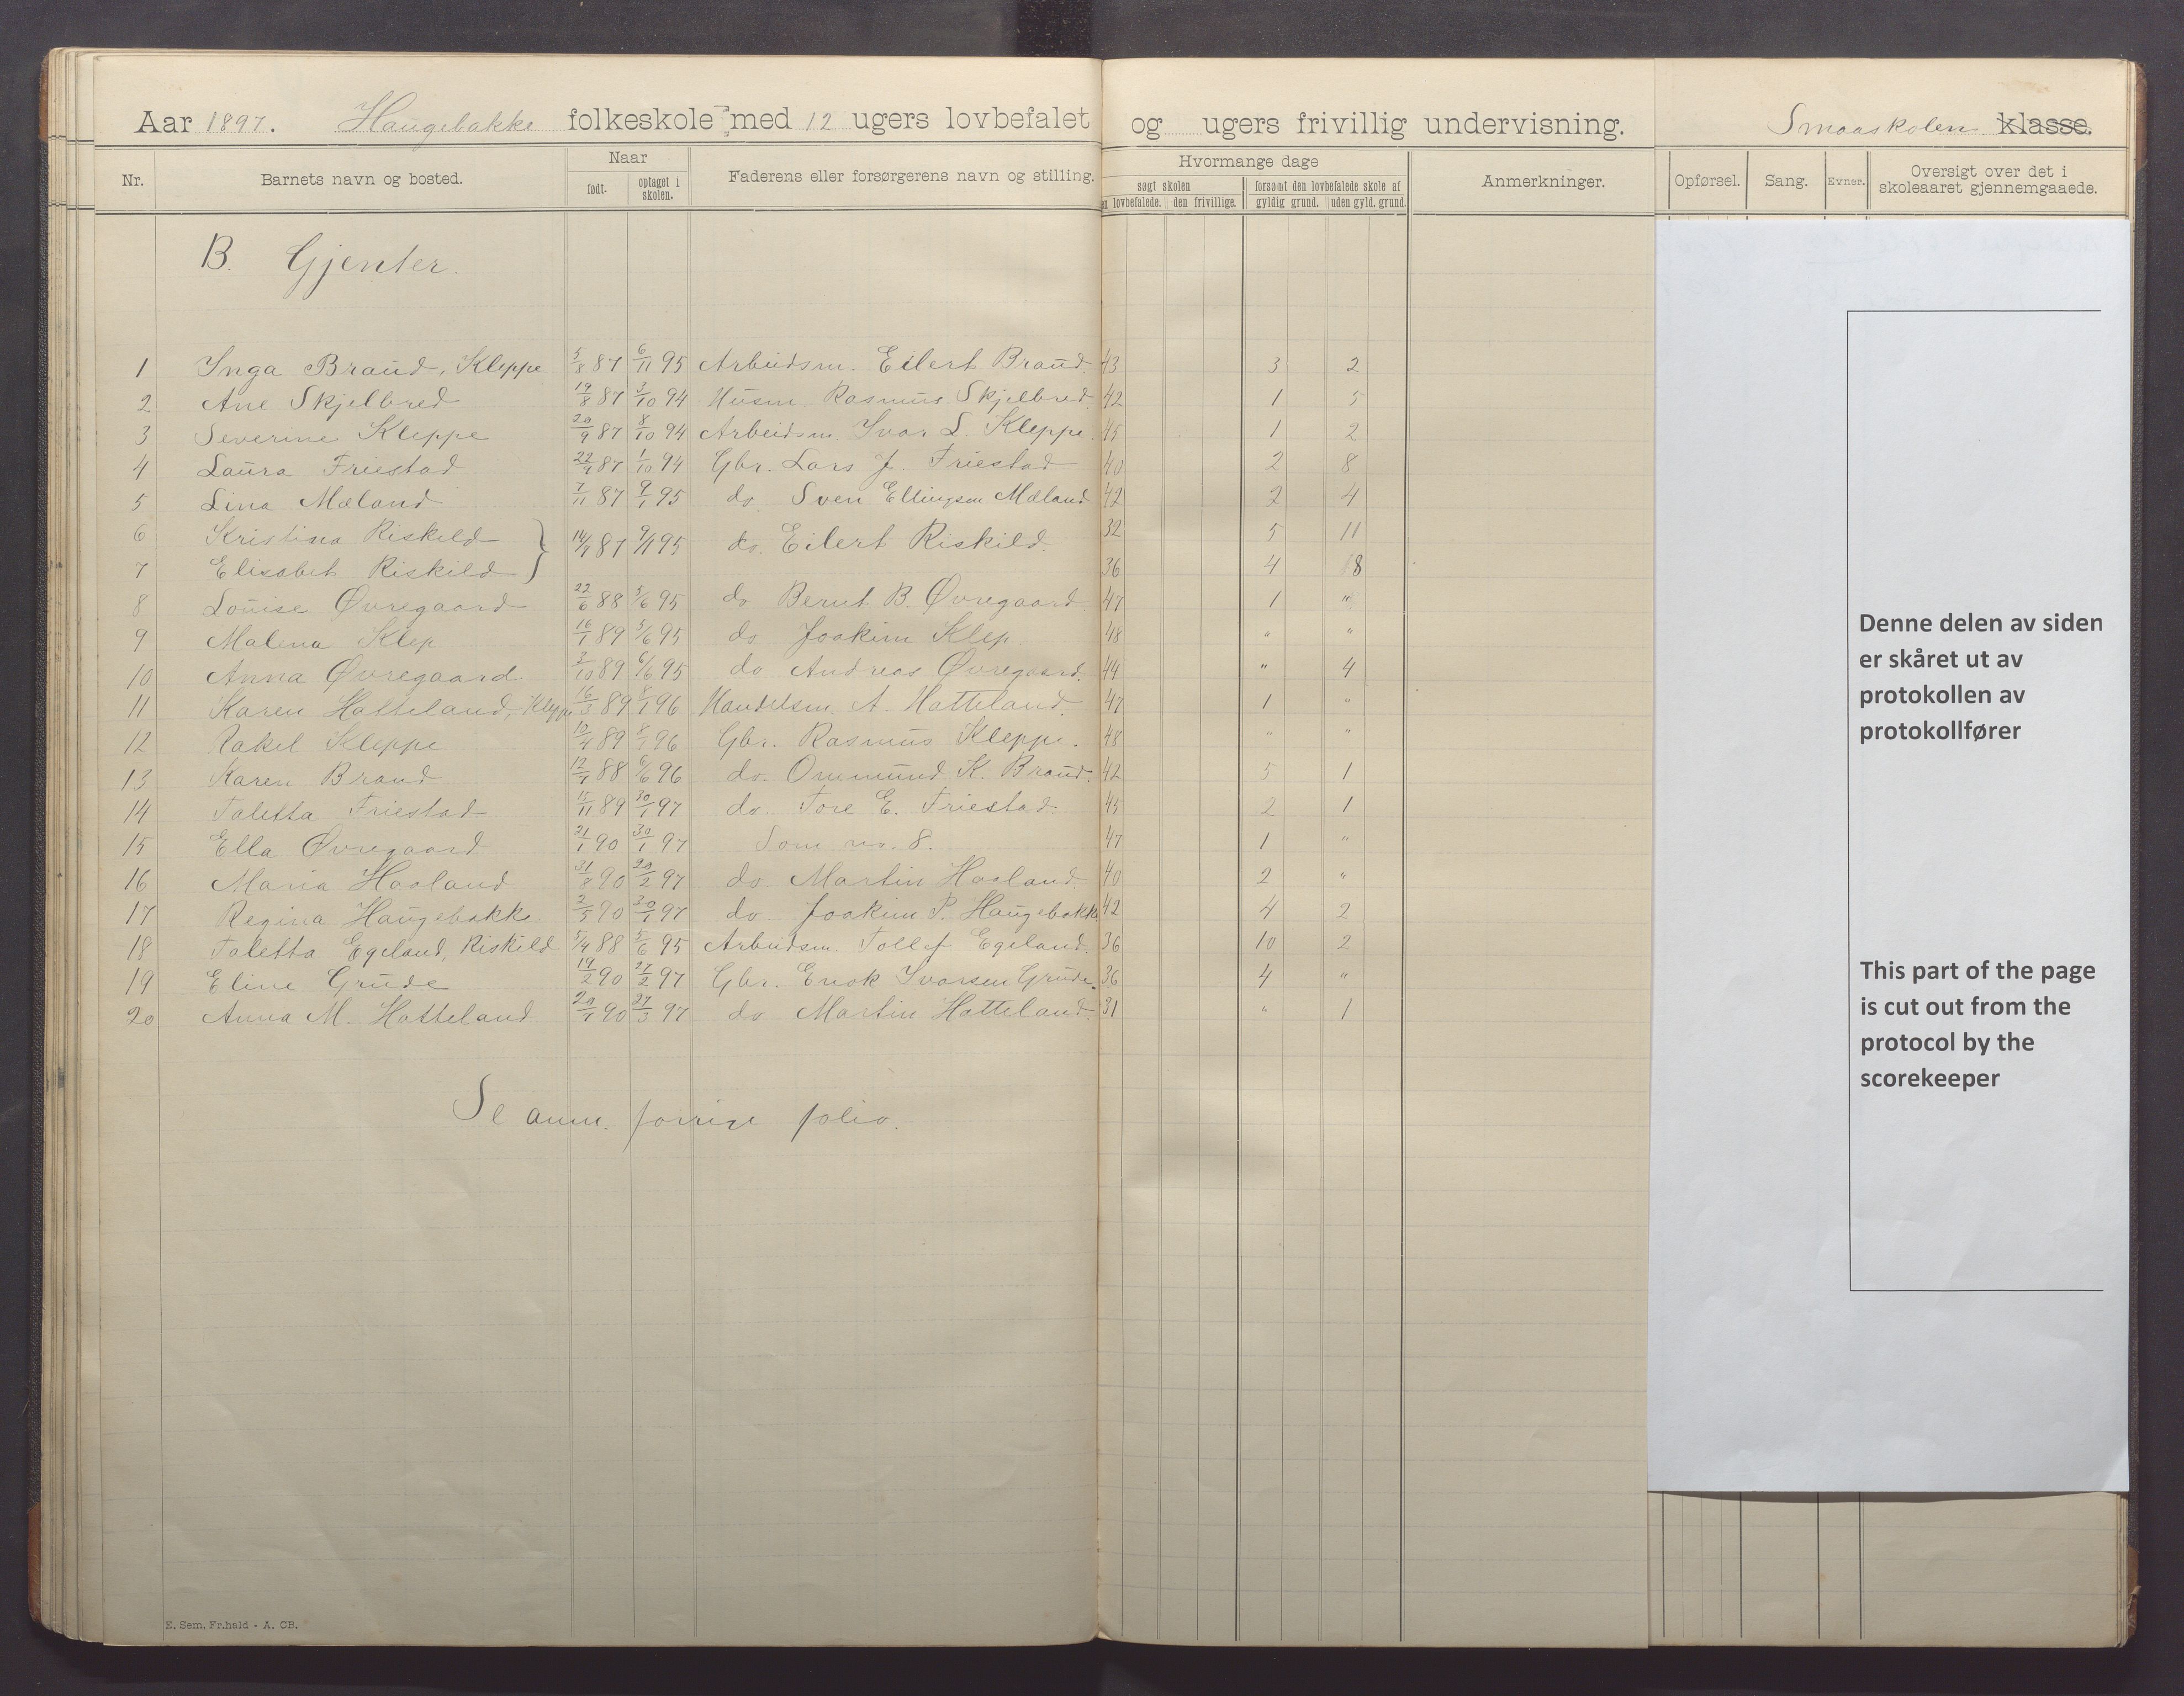 Aar 1897. Haugebakke folkeskole med 12 ugers lovbefalet og ugers frivillig undervisning. Smaaskolen klasse.
Nr. Barnets navn og bosted. Naar født. optaget i skolen. Faderens eller forsørgerens navn og stilling. Hvormange dage søgt skolen en lovbefalede. den frivillige. forsømt den lovbefalede skole af gyldig grund. uden gyld. grund. Anmerkninger. Opførsel. Sang. Evner. Oversigt over det i skoleaaret gjennemgaaede.
B. Gjenter.
1 Inga Braud, Kleppe 5/8 87 6/11 95 Arbeidsm. Eilert Braud. 43 3 2
2 Ane Skjelbred 19/8 87 3/10 94 Husm. Rasmus Skjelbred 42 1 5
3 Severine Kleppe 20/9 87 8/10 94 Arbeidsm. Ivar L. Kleppe. 45 1 2
4 Laura Friestad 22/9 87 1/10 94 Gbr. Lars J. Friestad 40 2 8
5 Lina Mæland 7/11 87 9/1 95 do. Sven Ellingsen Mæland 42 2 4
6 Kristina Riskild 14/9 87 9/1 95 do. Eilert Riskild. 32 5 11
7 Elisabet Riskild 36 4 8
8 Louise Øvregaard 22/6 88 5/6 95 do Bernt B. Øvregaard 47 1 "
9 Malena Klep 16/1 89 5/6 95 do Joakim Klep 48 " "
10 Anna Øvregaard. 3/10 89 6/6 95 do Andreas Øvregaard. 44 " 4
11 Karen Hatteland, Kleppe 16/3 89 8/1 96 Handelsm. A. Hatteland. 47 1 "
12 Rakel Kleppe 10/4 89 8/1 96 Gbr. Rasmus Kleppe. 48 " "
13 Karen Braud 12/7 88 6/6 96 do. Ommund K. Braud. 42 5 1
14 Taletta Friestad 15/11 89 30/1 97 do. Tore E. Friestad. 45 2 1
15 Ella Øvregaard 21/1 90 30/1 97 Som nr. 8. 47 1 "
16 Maria Haaland 31/8 90 20/2 97 do Martin Haaland. 40 2 "
17 Regina Haugebakke 2/5 90 30/1 97 do Joakim P. Haugebakke 42 4 2
18 Taletta Egeland, Riskild 5/4 88 5/6 95 Arbeidsm. Tollef Egeland. 36 10 2
19 Eline Grude 19/2 90 27/2 97 Gbr. Enok Ivarsen Grude. 36 4 "
20 Anna M. Hatteland 20/7 90 27/3 97 do Martin Hatteland. 31 " 1
Se anm. forrige folio.
Denne delen av siden
er skåret ut av
protokollen av
protokollfører
This part of the page
is cut out from the
protocol by the
scorekeeper
E. Sem, Fr.hald - A. CB.